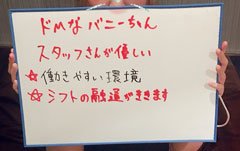 ドMなバニーちゃん
スタッフさんが優しい
☆働きやすい環境
☆シフトの融通がききます